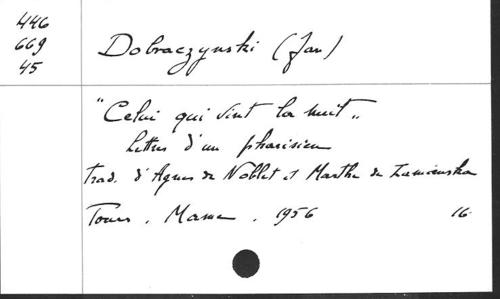 446
669
45
Dobraczynski (Jan)
"Celui qui vint la nuit"
Lettres d'un pharisien
trad. d'Agnes de Noblet et Marthe de Zamienska
Tours. Mame. 1956 16